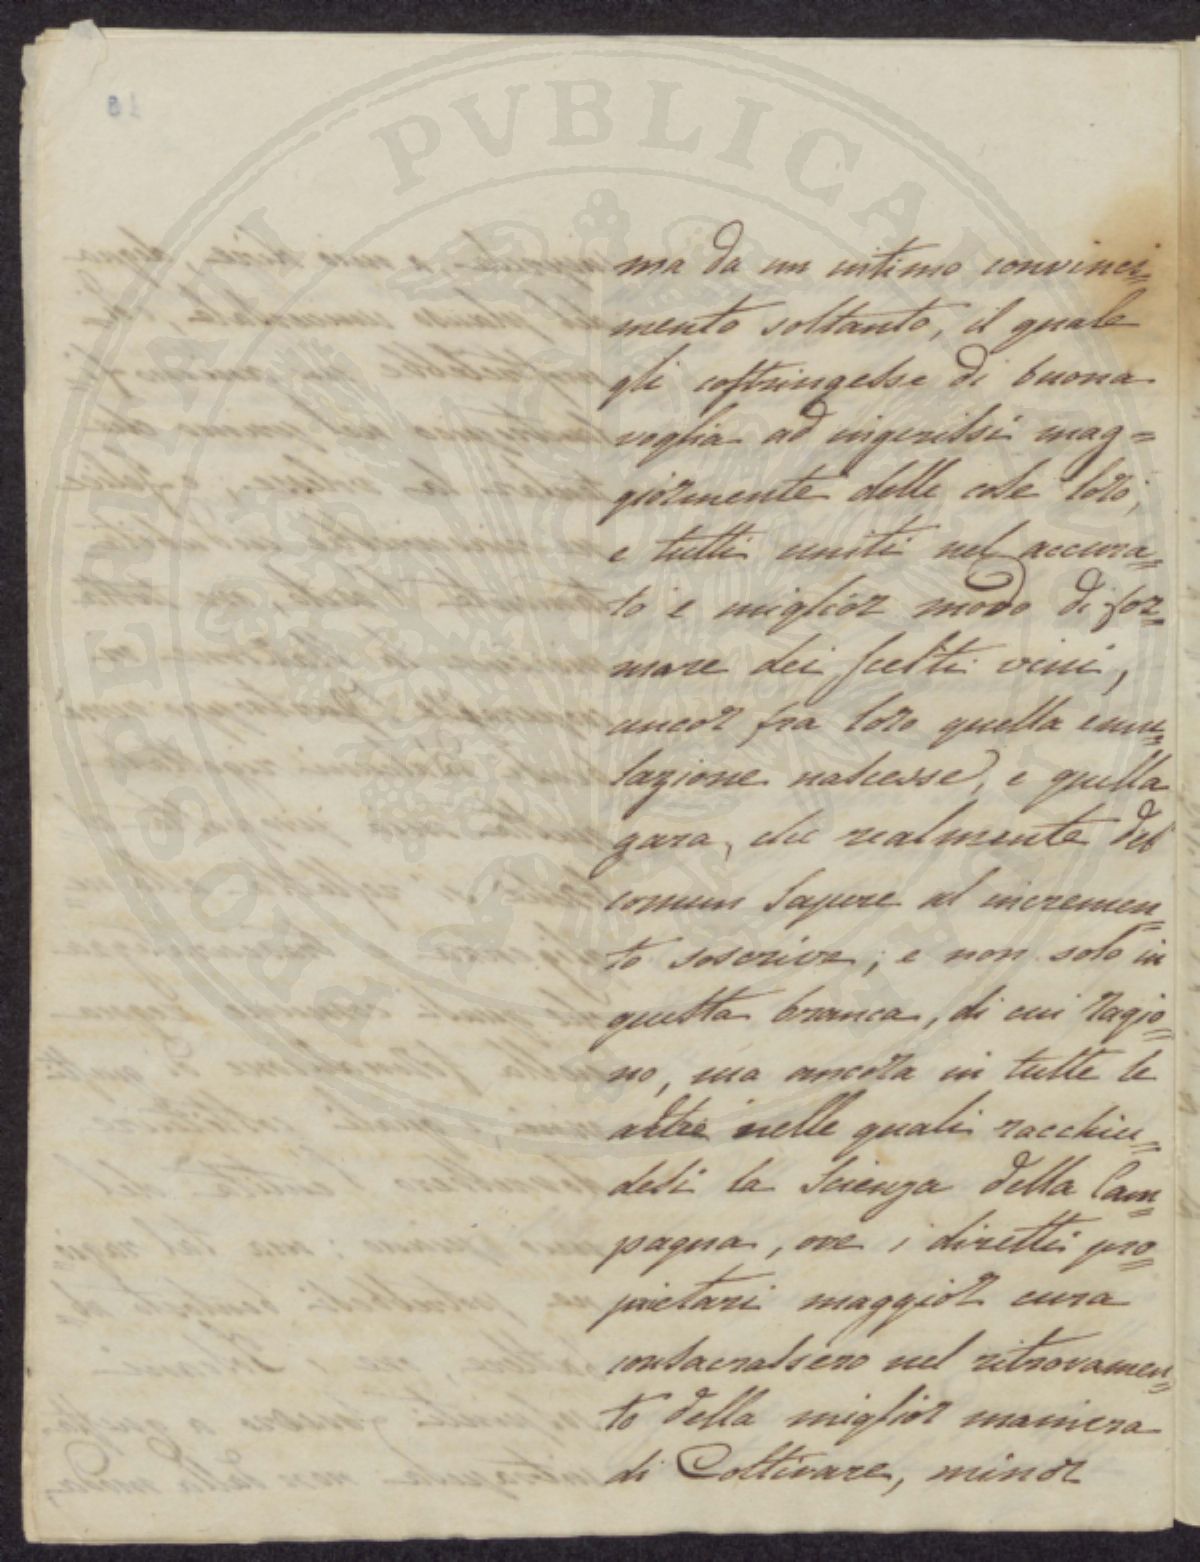 ma da un intimo convinci=
mento soltanto, il quale
gli costringesse di buona
voglia ad ingerissi mag=
giormente delle cose loro,
e tutti uniti nel accura=
to e miglior modo di for=
mare dei scelti vini,
ancor fra loro quella emu=
lazione nascesse, e quella
gara, che realmente del
comun sapere al incremen=
to soscrive; e non solo in
questa branca, di cui ragio=
no, ma ancora in tutte le
altre nelle quali racchiu=
desi la Scienza della Cam=
pagna, ove i diretti pro=
prietari maggior cura
consacrassero nel ritrovamen=
to della miglior maniera
di Coltivare, minor